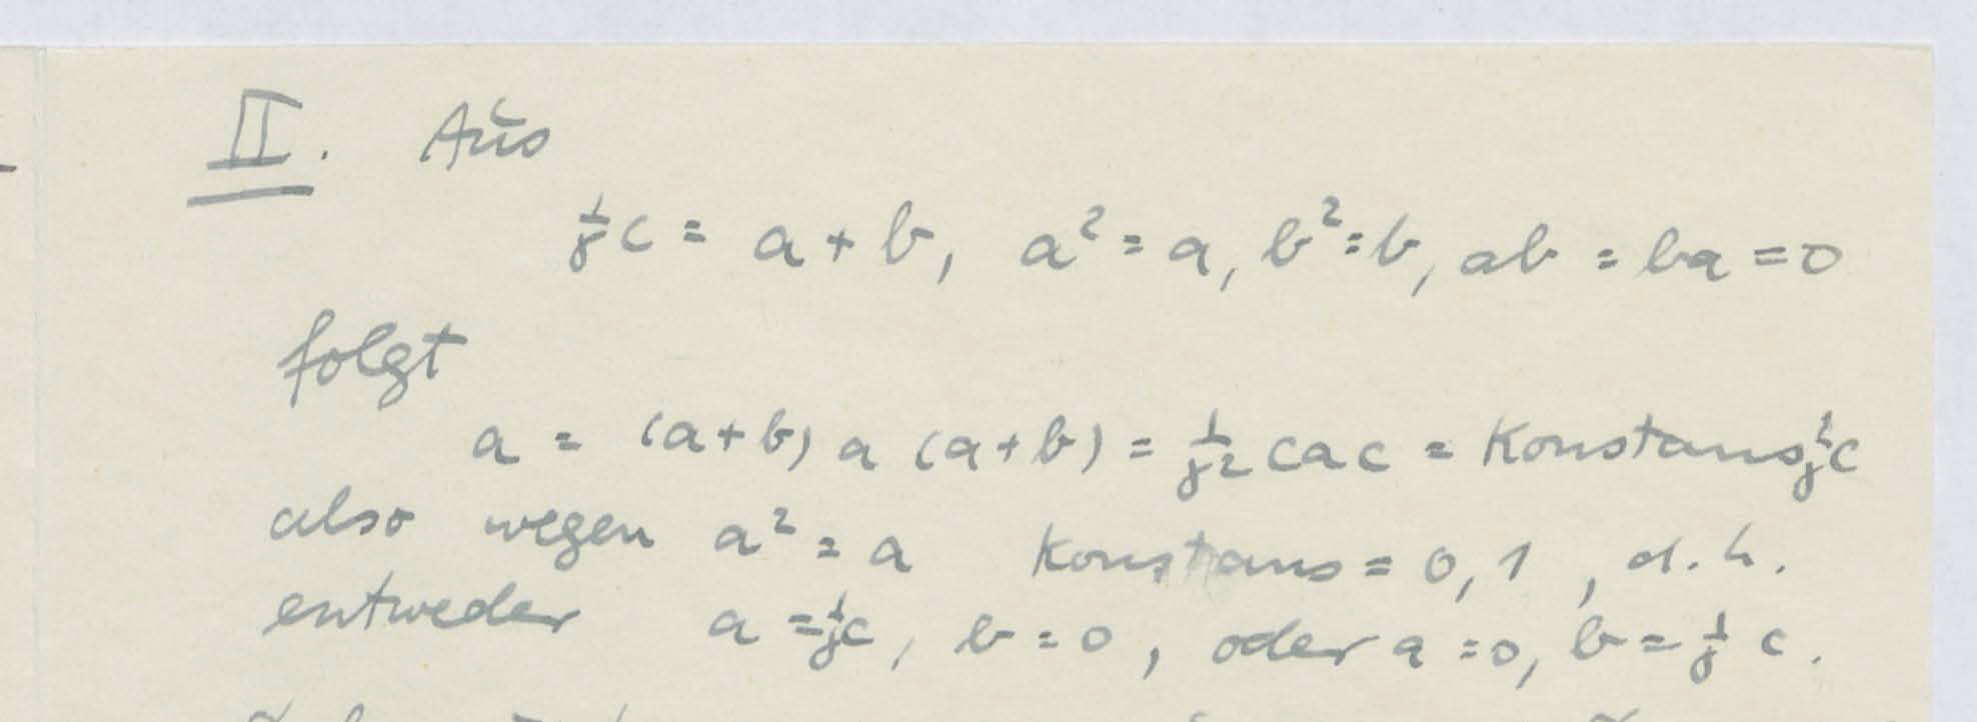 II. Aus
1/γ c = a + b, a² = a, b² = b, ab = ba = 0
folgt
a = (a+b) a (a+b) = 1/γ² cac = Konstans 1/γ c
also wegen a² = a Konstans = 0,1, d.h.
entweder a = 1/γ c, b = 0, oder a = 0, b = 1/γ c.